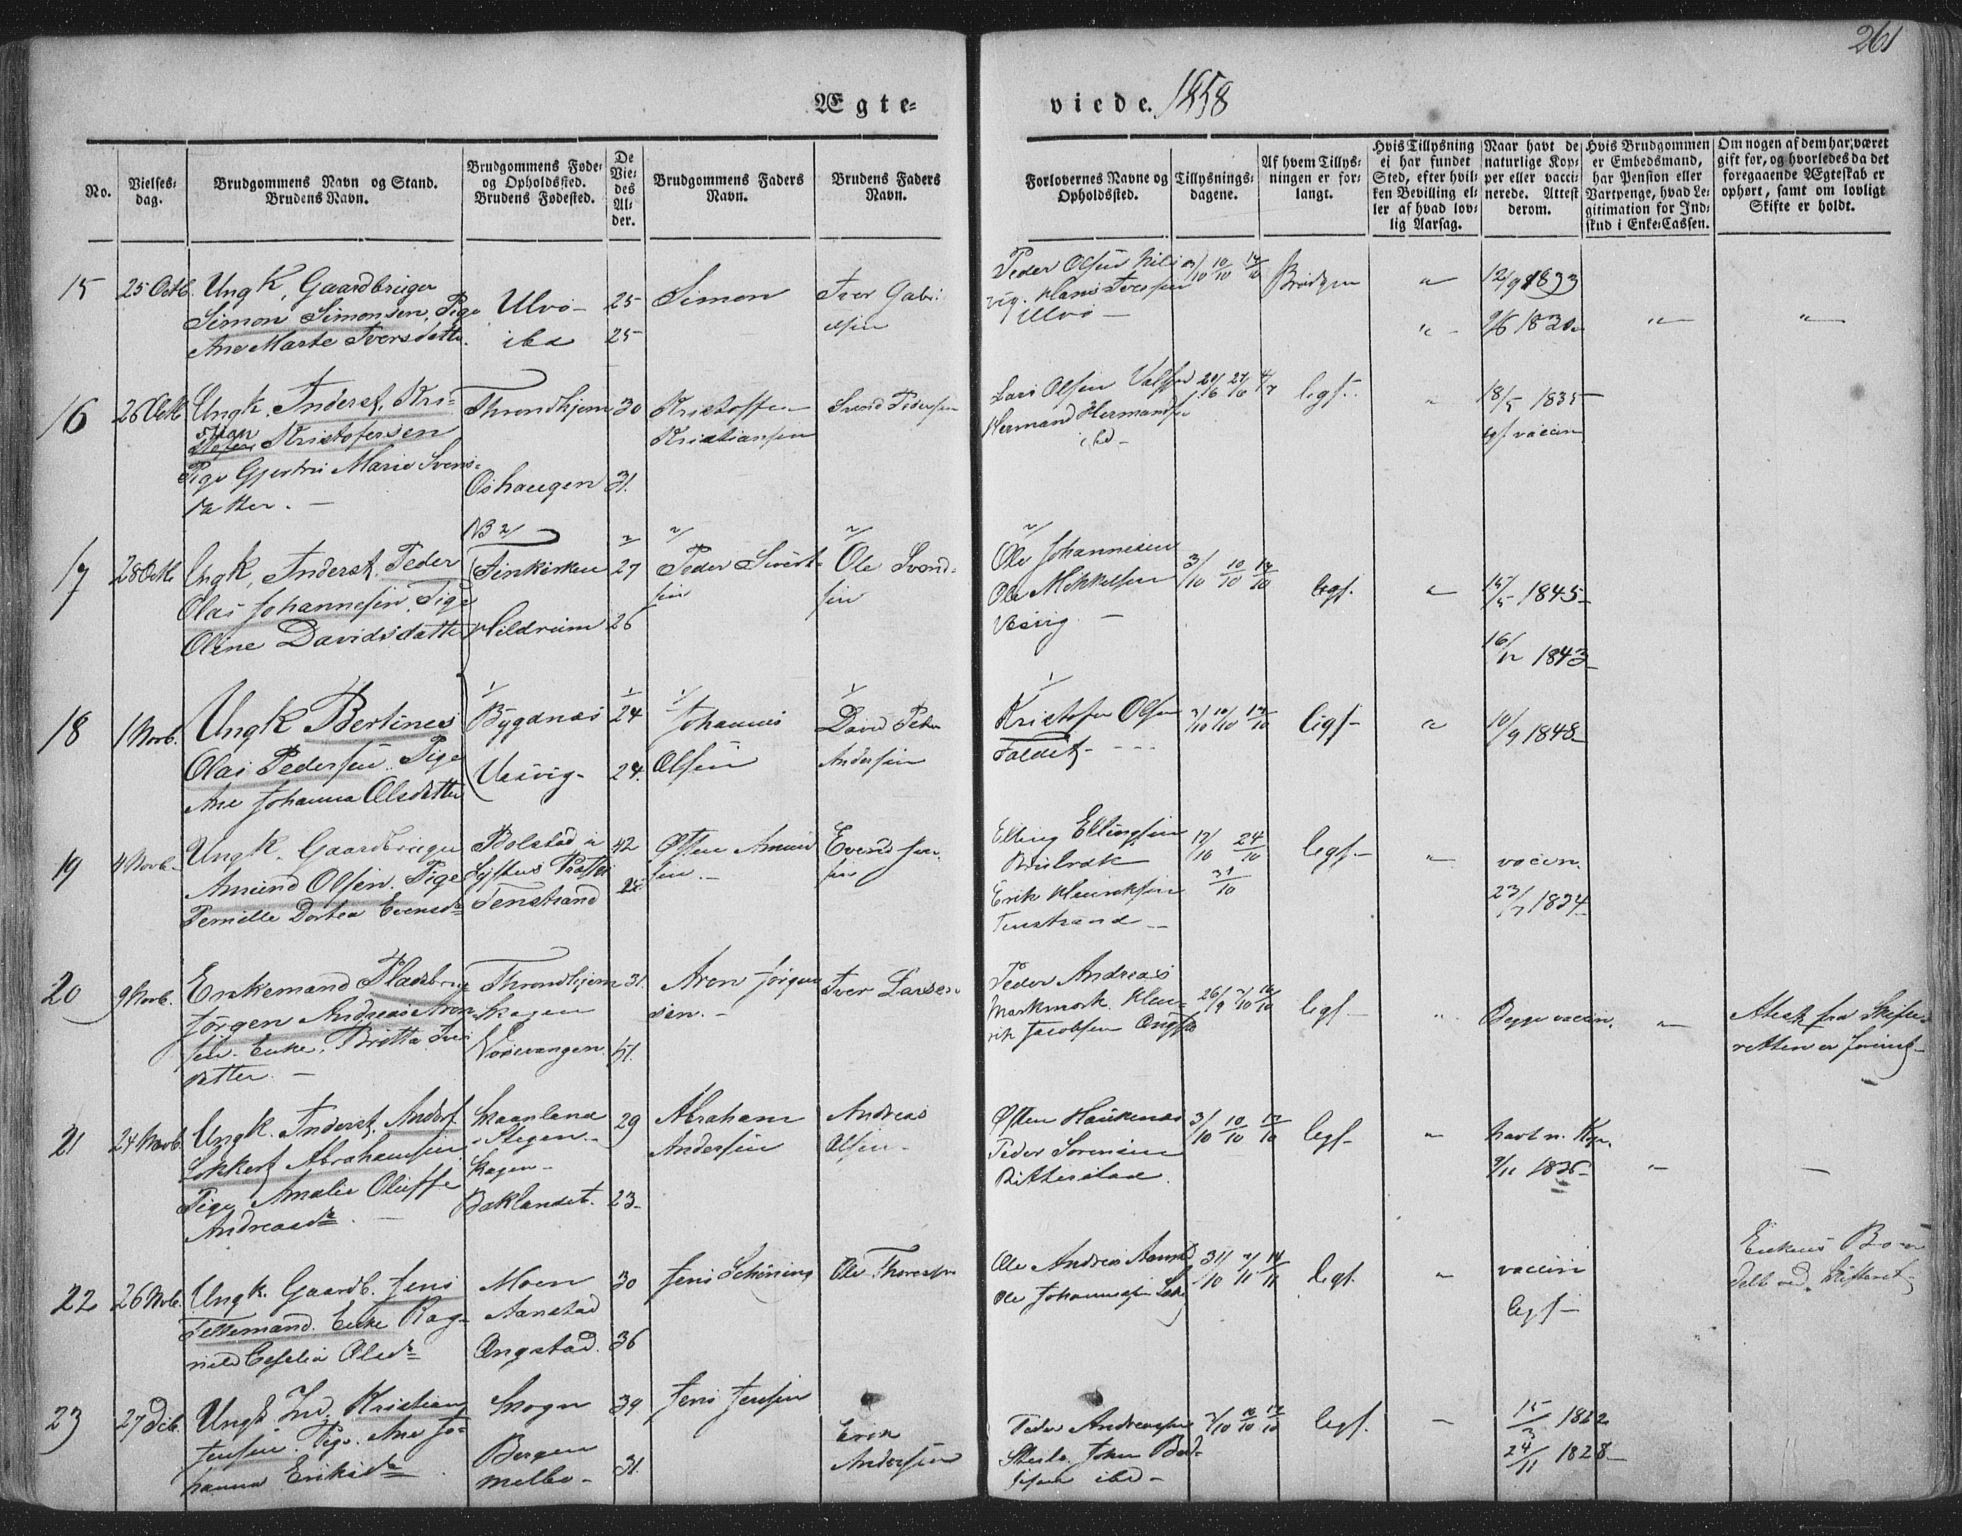 261
Ægte-
viede. 1858
No.
Vielses-
dag.
Brudgommens Navn og Stand.
Brudens Navn.
Brudgommens Føde-
og Opholdssted.
Brudens Fødested.
De
Vie-
des
Al-
der.
Brudgommens Faders
Navn.
Brudens Faders
Navn.
Forlovernes Navne og
Opholdssted.
Tillysnings-
dagene.
Af hvem Tillys-
ningen er for-
langt.
Hvis Tillysning
ei har fundet
Sted, efter hvil-
ken Bevilling el-
ler af hvad lov-
lig Aarsag.
Naar havt de
naturlige Kop-
per eller vacci-
nerede. Attest
derom.
Hvis Brudgommen
er Embedsmand,
har Pension eller
Vartpenge, hvad Le-
gitimation for Ind-
skud i Enke-Cassen.
Om nogen af dem har været
gift før, og hvorledes da det
foregaaende Ægteskab er
ophørt, samt om lovligt
Skifte er holdt.
15
25 Octb.
Ungk. Gaardbruger
Simon Simonsen, Pige
Ane Marte Iversdatter
Ulvø-
ibd
25
25
Simon
Iver Gabri-
elsen
Peder Olsen
Hans Iversen
Ulvø -
3/10 10/10 17/10
Brudgm
12/9 1833
2/6 1830
16
26 Octb
Ungk. Inderst, Kri-
stian
Kristofersen
Pige Gjertru Marie Svens-
datter. -
Throndhjem
Oshaugen
30
31.
Kristoffer
Kristiansen
Svend Pedersen
Lars Olsen
Hermand Hermandsen
ibd -
20/6 27/6 4/7
ligs.
18/5 1835
ligs vaccin
17
28 Octb
Ungk, Inderst, Peder
Olai Johannesen. Pige
Oline Davidsdatter
NB 2/
Finkirken
Hildreim
27
26
Peder Sivert-
sen
Ole Svend-
sen
Ole Johannesen
Ole Mikkelsen
Vesvig -
3/10 10/10 17/10
ligs.
15/5 1845
16/12 1843
18
1 Novb.
Ungk Bertines
Olai Pedersen. Pige
Ane Johanna Olsdatter
Bygdnes
Vesvig-
24
24.
Johannes
Olsen
David Peder
Andersen
Kristofer Olsen
Faldet -
3/10 10/10 17/10
ligs -
10/9 1848
19
4 Novb.
Ungk. Gaardbruger
Amund Olsen. Pige
Pernille Dortea Evensdr
Bolstad i
Tenstrand
42
25
Osten Amund-
sen. -
Evend Jen-
sen
Elling Ellingsen
Erik Henriksen
Tenstrand -
17/10 24/10
31/10
ligs -
vaccin.
23/7 1834
20
9 Novb.
Enkemand Pladsbrug
Jørgen Andreas Aron-
sen. Enke, Britta Ivers
datter. -
Throndhjem
Skagen
31.
51.
Aron Jørgen-
sen. -
Iver Larsen
Peder Andreas
Markmork Hen-
rik Jacobsen
26/9 3/10 10/10
ligs -
Begge vaccin.
Atest fra Skifte-
retten er forevist -
21
24 Novb.
Ungk. Inderst, Andors
Lokkert Abrahamsen
Pige Amalie Oluffe
Andreasdr -
Skaanland
i Stegen. -
Skagen -
Baklandet.
29
23
Abraham
Andersen
Andreas
Olsen -
Østen Haukenes
Peder Sorensen
Rittestad.
3/10 10/10 17/10
ligs -
havt n. Kop.
9/11 1836
22
26 Novb.
Ungk. Gaardb. Jens
Tettemand. Enke Rag-
nild Cecelia Olsdr
Moen
Aanstad
Ongstad.
30
36
Jens Schöning
Ole Thoresen
Ole Andreas Aanstad
Ole Johannesen
31/10 7/11 14/11
ligs.
vaccin
ligs -
Enkens Bo er
delt ved Skifteret -
23
27 Dcb.
Ungk Ind, Kristian
Jensen. Pige. Ane Jo-
hanna Eriksdr
Skogn
Bergen
Melbo -
39
31.
Jens Jensen
Erik
Andersen
Peder Andreassen
ibd -
3/10 10/10 17/10
ligs.
15/3 1822
24/11 1828